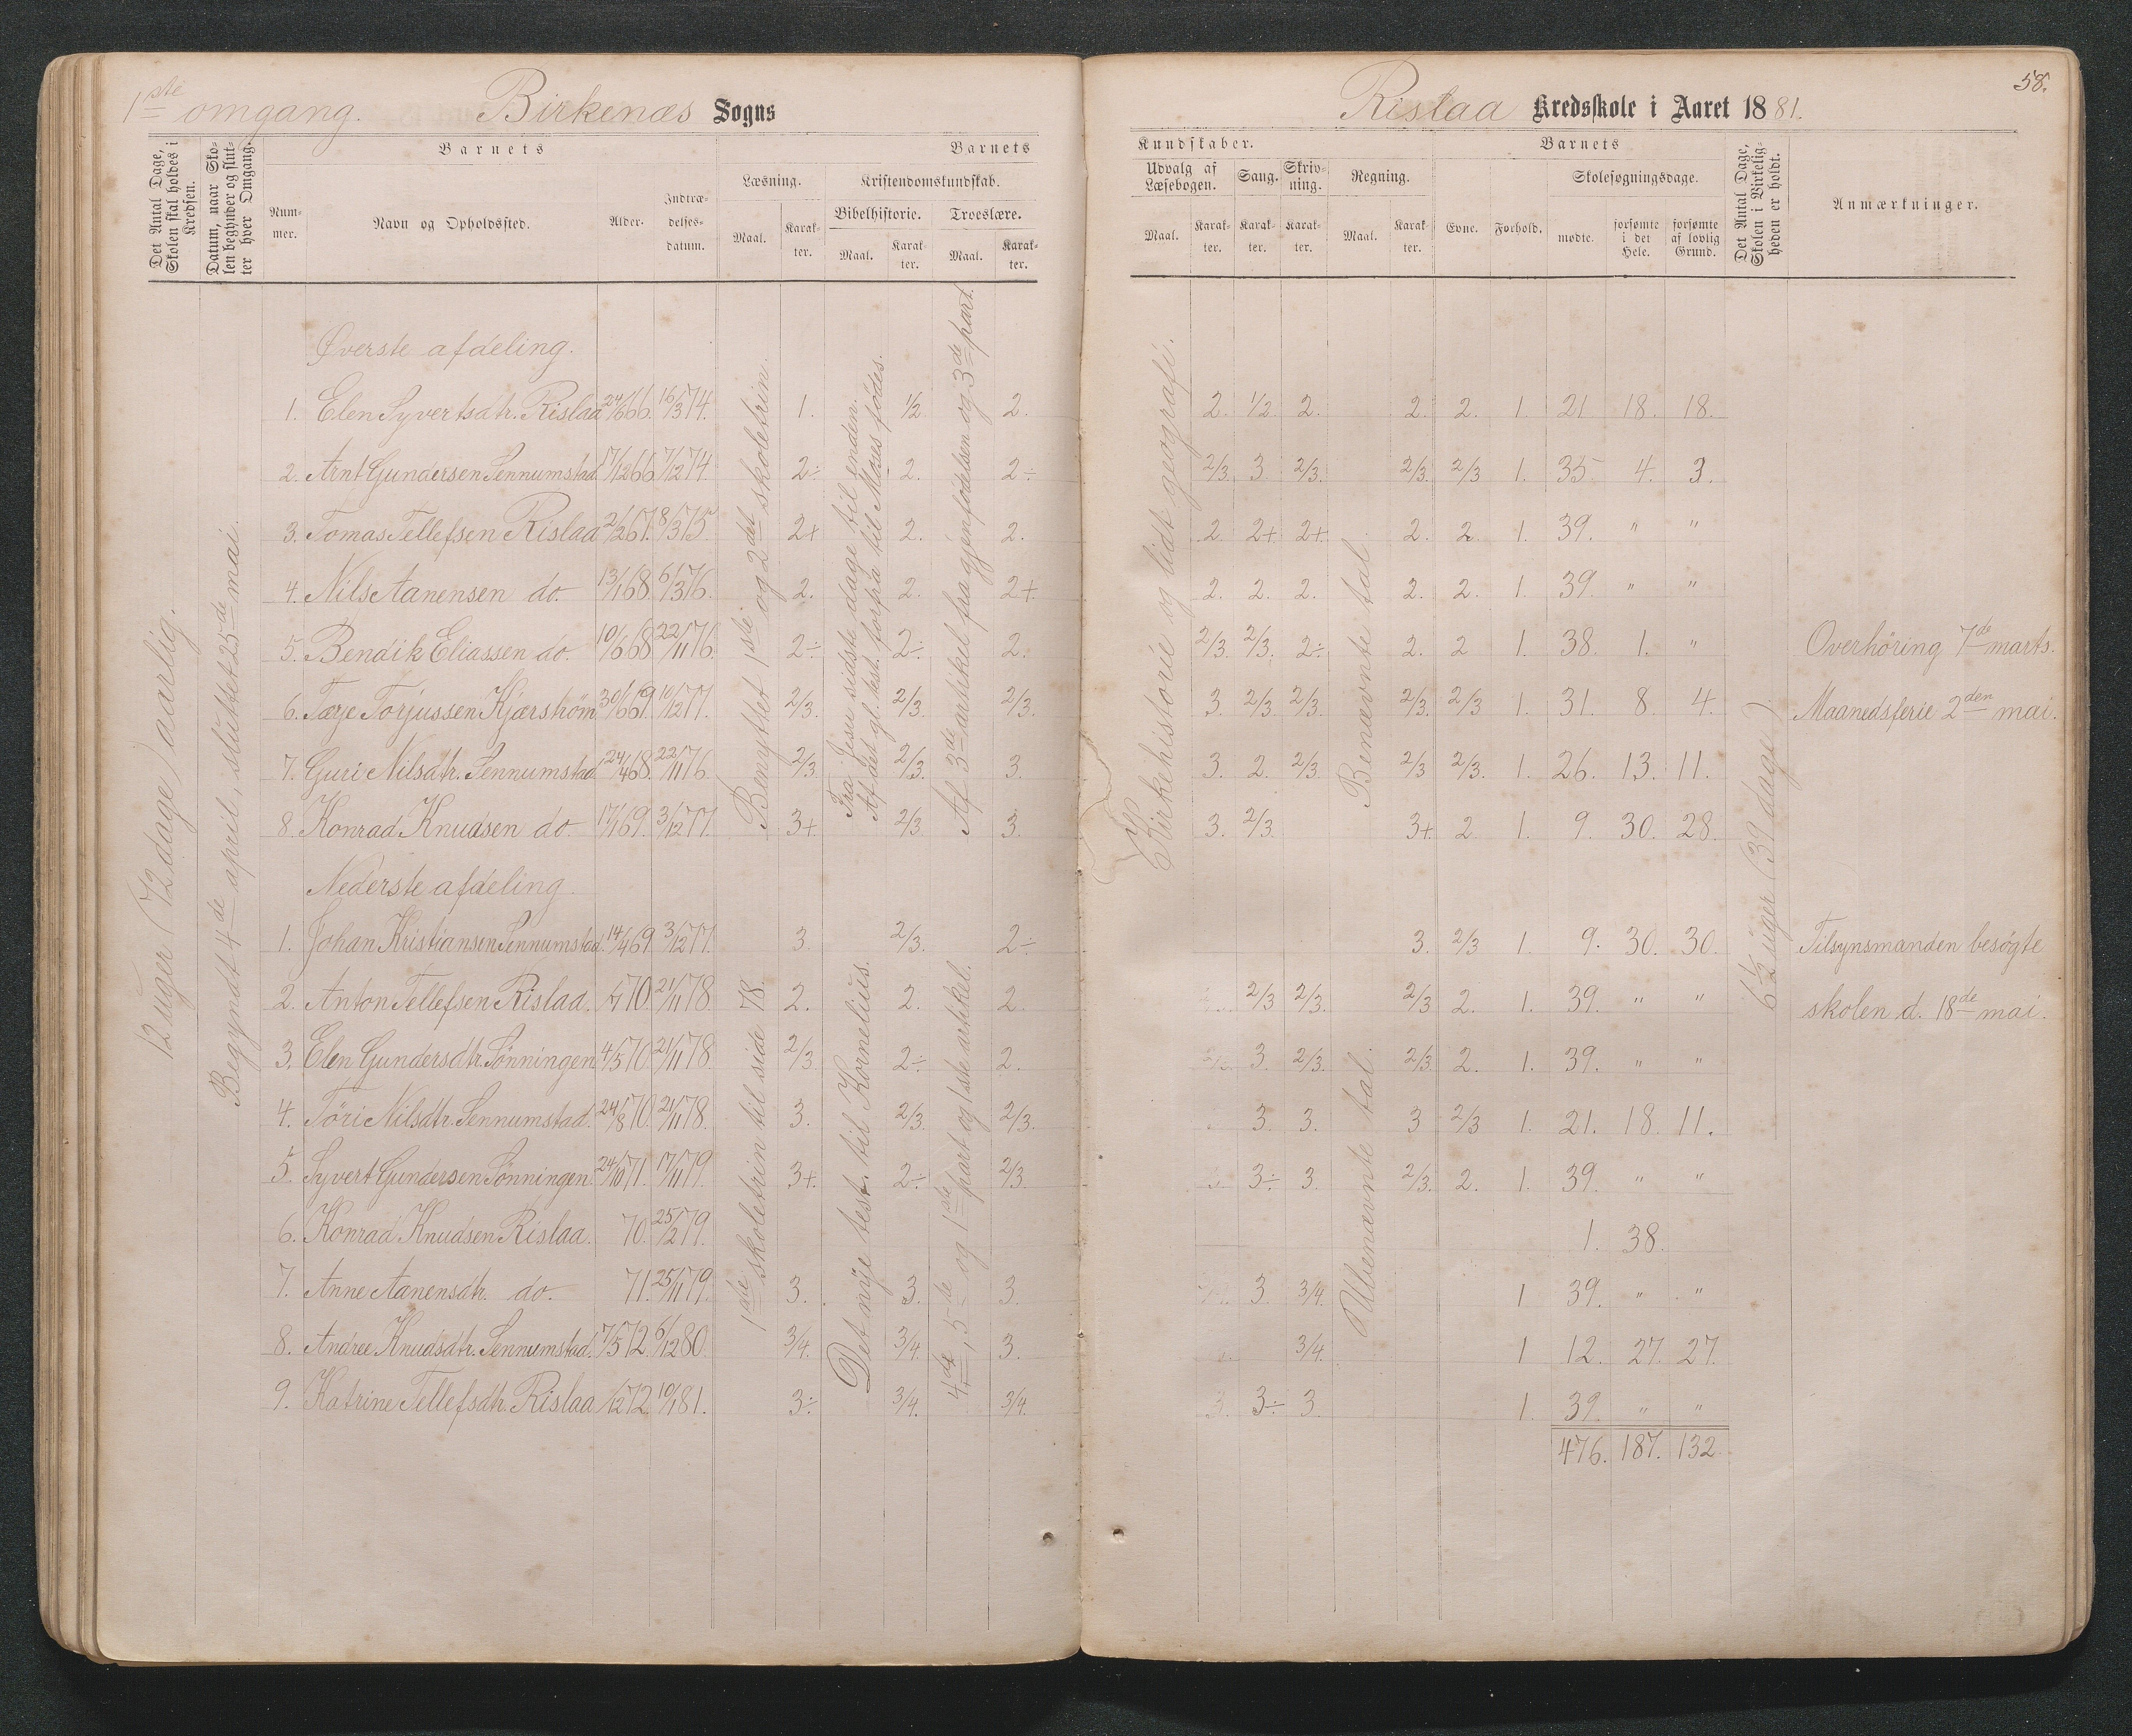 58.
1ste omgang. Birkenæs Sogns
Rislaa Kredsskole i Aaret 1881.
Det Antal Dage, Skolen skal holdes i Kredsen.
Datum, naar Skolen begynder og slutter hver Omgang.
Barnets
Nummer.
Navn og Opholdssted.
Alder.
Indtrædelses-datum.
Barnets
Læsning.
Maal.
Karakter.
Kristendomskundskab.
Bibelhistorie.
Maal.
Karakter.
Troeslære.
Maal.
Karakter.
Kundskaber.
Udvalg af Læsebogen.
Maal.
Karakter.
Sang.
Karakter.
Skrivning.
Karakter.
Regning.
Maal.
Karakter.
Barnets
Evne.
Forhold.
Skolesøgningsdage.
mødte.
forsømte i det Hele.
forsømte af lovlig Grund.
Det Antal Dage, Skolen i Virkeligheden er holdt.
Anmærkninger.
12 uger (72 dage) aarlig.
Begyndt 4de april, sluttet 25de mai.
Benyttet 1ste og 2det skoletrin.
Fra Jesu sidste dage til enden.
Af det gl. test. forfra til Moses fødes.
Af 3de artikel fra gjenfødelsen og 3de part.
Kirkehistorie og lidt geografi.
Benævnte tal
6 1/2 uger (39 dage).
Øverste afdeling.
1. Elen Syvertsdtr. Rislaa 24/6 66. 16/3 74. 1. 1/2 2. 2. 1/2 2. 2. 2. 1. 21 18. 18.
2. Arnt Gundersen Sennumstad 17/12 66 7/12 74. 2÷ 2. 2÷ 2/3. 3 2/3. 2/3. 2/3 1. 35 4. 3.
3. Tomas Tellefsen Rislaa 2/2 67. 8/3 75. 2+ 2. 2. 2. 2+ 2+ 2. 2. 1. 39. " "
4. Nils Aanensen do. 13/1 68. 6/3 76. 2. 2. 2+ 2. 2. 2. 2. 2. 1. 39. " "
5. Bendik Eliassen do. 10/6 68 22/11 76. 2÷ 2÷ 2. 2/3. 2/3. 2÷ 2. 2 1. 38. 1. " Overhöring 7de marts.
6. Tærje Torjussen Kjærshöm 30/6 69. 10/12 77. 2/3. 2/3. 2/3. 3. 2/3. 2/3. 2/3. 2/3 1. 31. 8. 4. Maanedsferie 2den mai.
7. Guri Nilsdtr. Sennumstad 24/4 68. 22/11 76. 2/3 2/3. 3. 3. 2. 2/3 2/3 2/3. 1. 26. 13. 11.
8. Konrad Knudsen do. 17/1 69. 3/12 77. 3+. 2/3 3. 3. 2/3. 3+. 2 1. 9. 30. 28.
Nederste afdeling
1ste skoletrin til side 78.
Det nye test. til Kornelius.
4de, 5de og 1ste part og 1ste artikkel.
Ubenævnte tal.
1. Johan Kristiansen Sennumstad. 14/4 69 3/12 77. 3. 2/3. 2÷ 3. 2/3 1. 9. 30. 30. Tilsynsmanden besøgte
2. Anton Tellefsen Rislaa. /7 70. 21/11 78 2. 2. 2. 2/3 2/3. 2/3 2. 1. 39. " " skolen d. 18de mai.
3. Elen Gundersdtr. Sönningen 4/5 70. 21/11 78. 2/3. 2÷ 2. 3. 2/3. 2/3 2. 1. 39. " "
4. Töri Nilsdtr. Sennumstad. 24/8 70. 21/11 78. 3. 2/3. 2/3. 3. 3. 3 2/3 1. 21. 18. 11.
5. Syvert Gundersen Sönningen 24/10 71. 17/11 79. 3+. 2÷ 2/3. 3. 3÷ 3. 2/3. 2. 1. 39. " "
6. Konrad Knudsen Rislaa. 70. 25/2 79. 1. 38.
7. Anne Aanensdtr. do. 71. 25/11 79. 3. 3. 3. 3 3/4. 1 39. " "
8. Andree Knudsdtr. Sennumstad. 7/5 72. 6/12 80. 3/4. 3/4. 3. 3/4. 1 12. 27. 27.
9. Katrine Tellefsdtr. Rislaa /12 72 10/1 81. 3÷ 3/4. 3/4. 3. 3÷ 3. 1. 39. " "
476. 187. 132